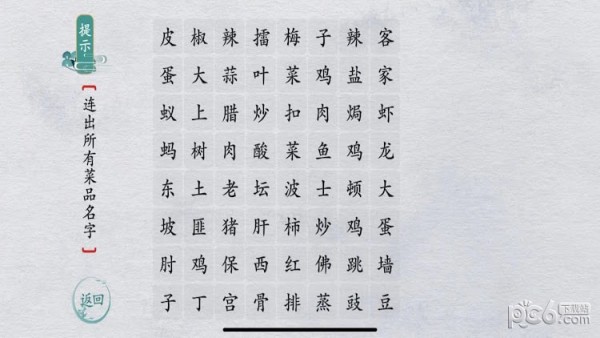 提示
连出所有菜品名字
返回
皮椒辣擂梅子辣客
蛋大蒜叶菜鸡盐家
蚁上腊炒扣肉焗虾
蚂树肉酸菜鱼鸡龙
东土老坛波士顿大
坡匪猪肝柿炒鸡蛋
肘鸡保西红佛跳墙
子丁宫骨排蒸豉豆
pc6下载站
.com